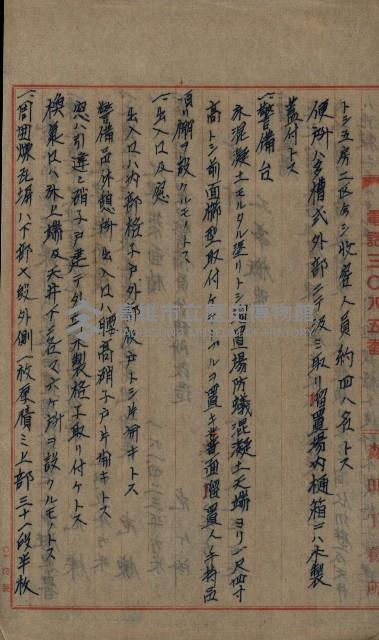 トシ五房ニ区分シ收容人員約四八名トス
便所ハ各槽式外部ニテ汲ミ取リ留置場内樋箱ニハ木製
蓋付トス
一、警備台
永混凝土モルタル塗リトシ留置場防蟻混凝土天場ヨリ一尺四寸
高トシ前面棚型取付ケテーブルヲ置キ背面留置人手荷品
置棚ヲ設クルモノトス
一、出入口及窓
出入口ハ内部格子戸外部板戸トシ片開キトス
警備員休憩所出入口ハ腰高硝子戸片開キトス
窓ハ引違ヒ硝子戸建テ外部木製格子取リ付ケトス
換氣口ハ床上場及天井下ニ各々六ケ所ヲ設クルモノトス
一、周囲煉瓦塀ハ下部七段外側一枚厚積ミ上部三十一段半枚
電話三〇九五番
高雄市立歷史博物館